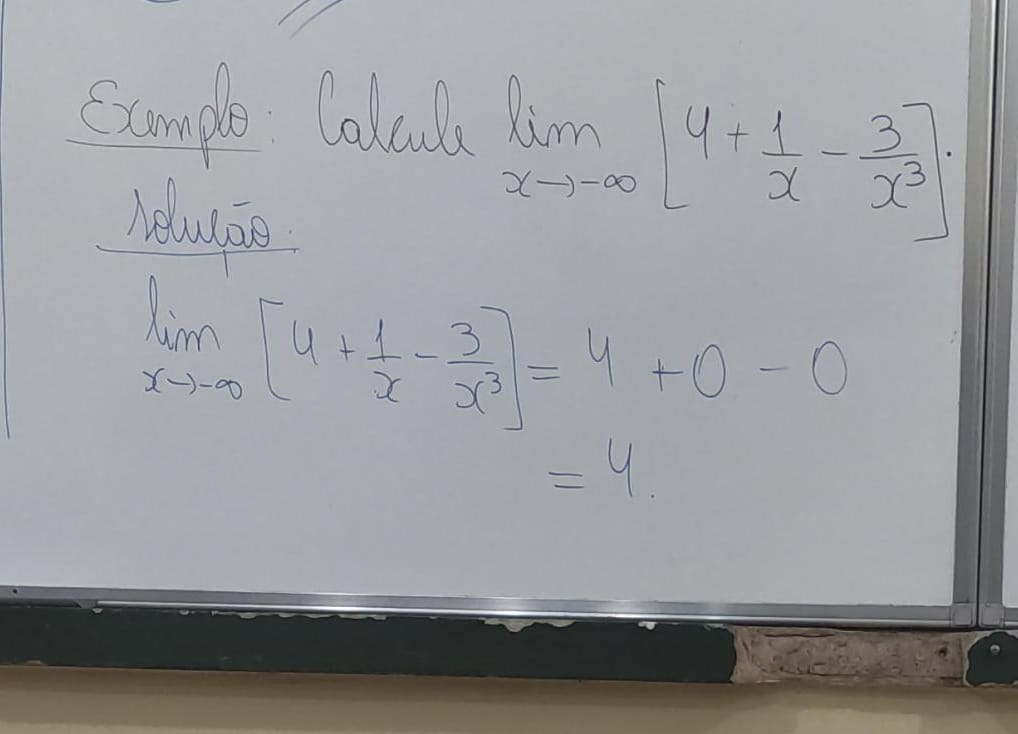 Exemplo: Calcule lim x→-∞ [4 + 1/x - 3/x³].
solução.
lim x→-∞ [4 + 1/x - 3/x³] = 4 + 0 - 0
= 4.